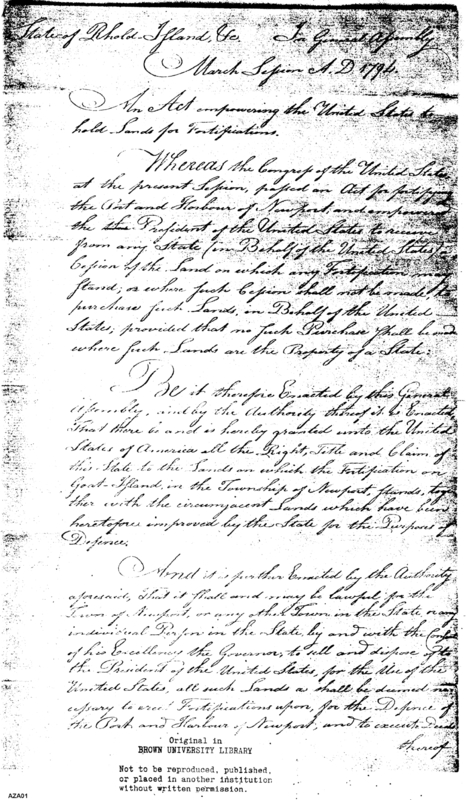 State of Rhode-Island, &c. In General Assembly
March Session A.D. 1794.
An Act empowering the United States to
hold Lands for Fortifications.
Whereas the Congress of the United States
at the present Session, passed an Act for fortifying
the Port and Harbour of Newport, and empowered
the President of the United States to receive
from any State (in Behalf of the United States) a
Cession of the Land on which any Fortification may
stand; or where such Cession shall not be made, to
purchase such Lands, in Behalf of the United
States, provided that no such Purchase shall be made
where such Lands are the Property of a State:
Be it therefore Enacted by this General
Assembly, and by the Authority thereof it is Enacted,
That there be and is hereby granted unto the United
States of America all the Right, Title and Claim of
this State to the Lands on which the Fortification on
Goat-Island, in the Township of Newport, stands, toge
ther with the circumjacent Lands which have been
heretofore improved by the State for the Purpose of
Defence.
And it is further Enacted by the Authority
aforesaid, that it shall and may be lawful for the
Town of Newport, or any other Town in the State or any
individual Person in the State, by and with the Consent
of his Excellency the Governor, to sell and dispose of to
the President of the United States, for the Use of the
United States, all such Lands as shall be deemed ne
cessary to erect Fortifications upon, for the Defence of
the Port and Harbour of Newport, and to execute Deeds
thereof
Original in
BROWN UNIVERSITY LIBRARY
Not to be reproduced, published,
or placed in another institution
without written permission.
AZA01